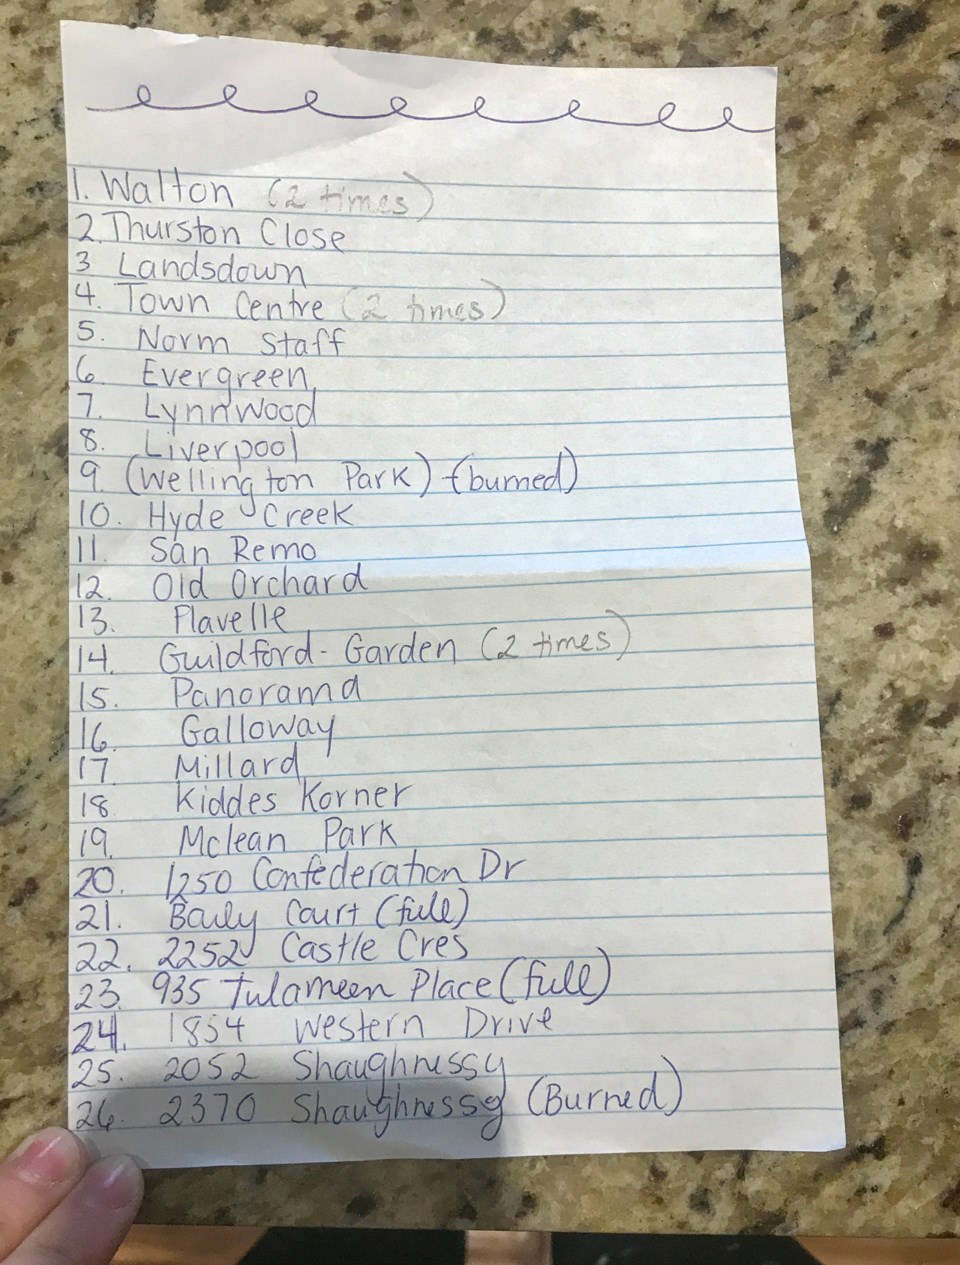 1. Walton (2 times)
2. Thurston Close
3 Landsdown
4. Town Centre (2 times)
5. Norm Staff
6. Evergreen
7. Lynnwood
8. Liverpool
9. (Wellington Park) - (burned)
10. Hyde Creek
11. San Remo
12. Old Orchard
13. Flavelle
14. Guildford - Garden (2 times)
15. Panorama
16. Galloway
17. Millard
18. Kiddes Korner
19. Mclean Park
20. 1250 Confederation Dr
21. Baily Court (full)
22. 2252 Castle Cres
23. 935 Tulameen Place (full)
24. 1854 Western Drive
25. 2052 Shaughnessy
26. 2370 Shaughnessy (Burned)